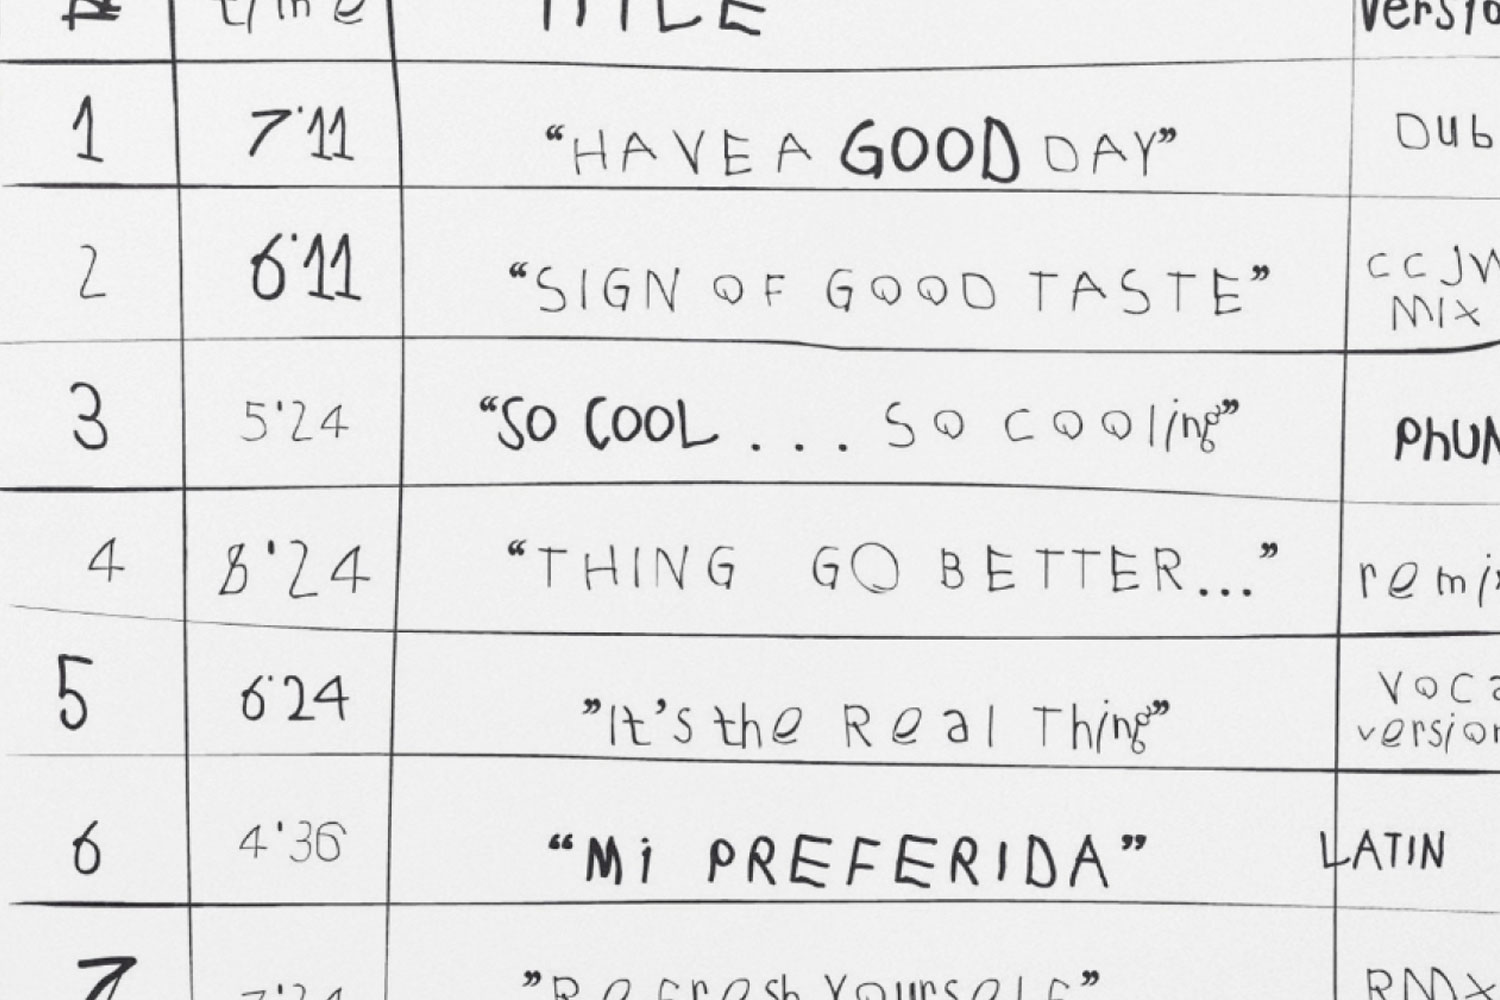 # time TITLE versio
1 7'11 “HAVE A GOOD DAY” DUB
2 6'11 “SIGN OF GOOD TASTE” CCJW
MIX
3 5'24 “SO COOL... SO COOling” PhUN
4 8'24 “THING GO BETTER...” remix
5 6'24 ”It's the Real Thing” Voca
version
6 4'36 “Mi PREFERIDA” LATIN
7 7'24 ”Refresh Yourself” RMX